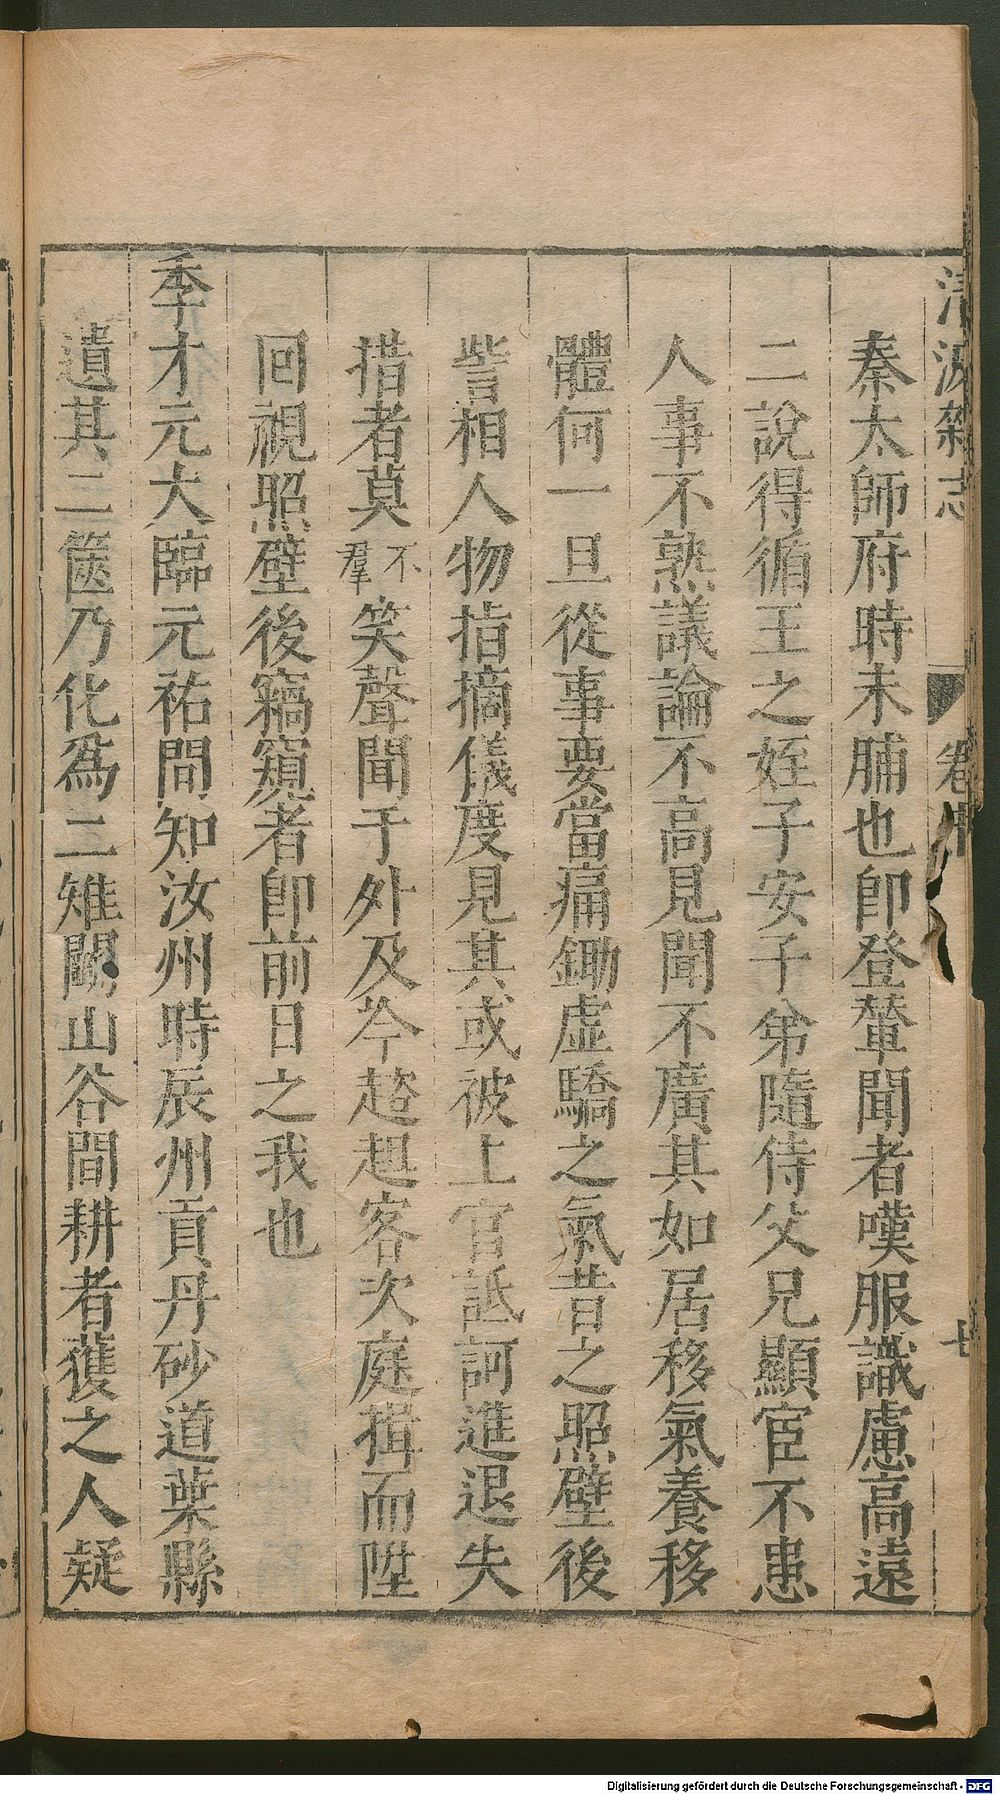 清波雜志 卷 七
秦太師府時未脯也卽登輦聞者嘆服識慮高遠
二說得循王之姪子安子弟隨侍父兄顯宦不患
人事不熟議論不高見聞不廣其如居移氣養移
體何一旦從事要當痛鋤虛驕之氣昔之照壁後
訾相人物指摘儀度見其或被上官詆訶進退失
措者莫不羣笑聲聞于外及今趑趄客次庭揖而陞
回視照壁後竊窺者卽前日之我也
季才元大臨元祐間知汝州時辰州貢丹砂道葉縣
遺其二篋乃化爲二雉鬭山谷間耕者獲之人疑
Digitalisierung gefördert durch die Deutsche Forschungsgemeinschaft - DFG